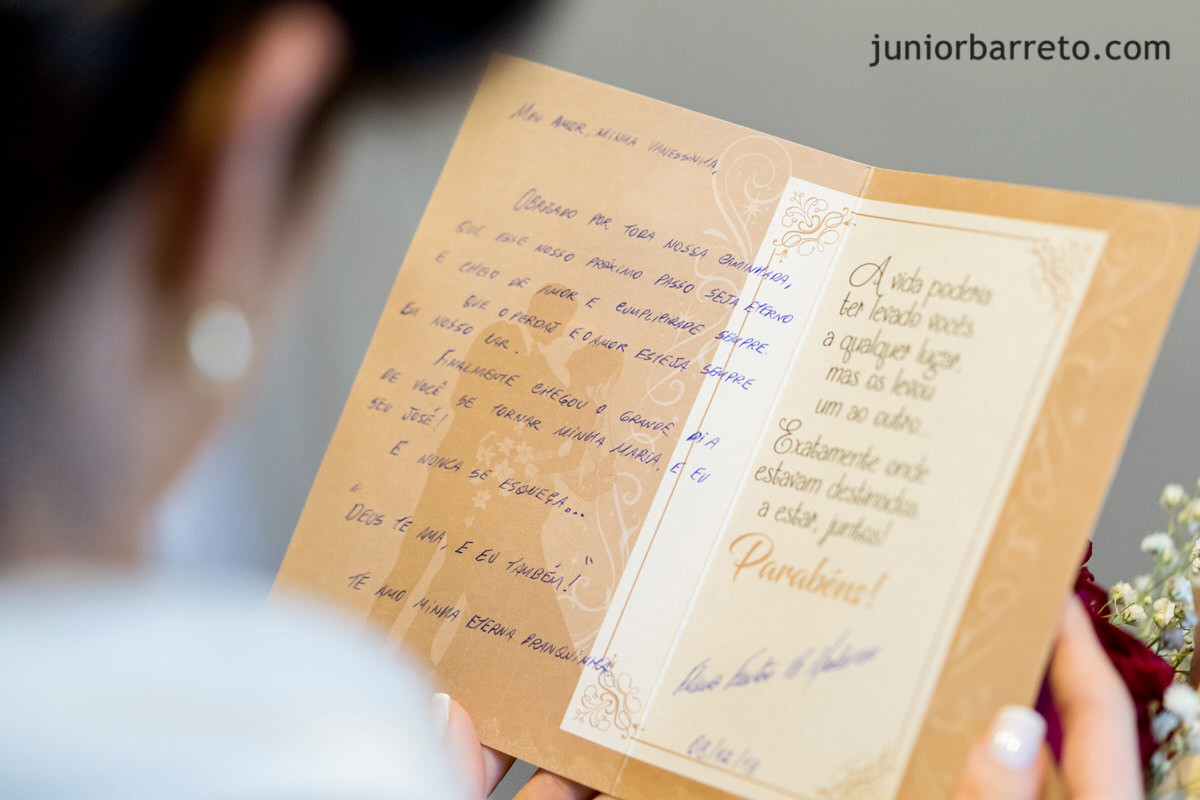 juniorbarreto.com
MEU AMOR, MINHA VANESSINHA,
OBRIGADO POR TODA NOSSA CAMINHADA,
QUE ESSE NOSSO PRÓXIMO PASSO SEJA ETERNO
E CHEIO DE AMOR E CUMPLICIDADE SEMPRE.
QUE O PERDÃO E O AMOR ESTEJA SEMPRE
EM NOSSO LAR.
FINALMENTE CHEGOU O GRANDE DIA
DE VOCÊ SE TORNAR MINHA MARIA, E EU
SEU JOSÉ!
E NUNCA SE ESQUEÇA...
"DEUS TE AMA, E EU TAMBÉM!"
TE AMO MINHA ETERNA BRANQUINHA
A vida poderia
ter levado vocês
a qualquer lugar,
mas os levou
um ao outro...
Exatamente onde
estavam destinados
a estar, juntos!
Parabéns!